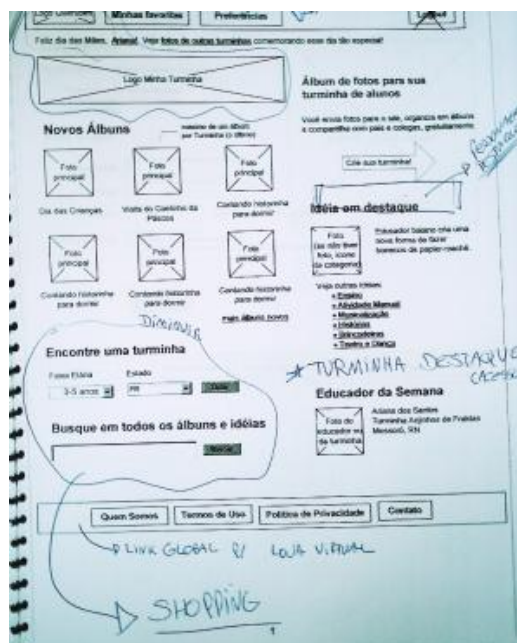 Minhas favoritas
Preferências
Logout
Feliz dia das Mães, Ariana! Veja fotos de outras turminhas comemorando esse dia tão especial!
Logo Minha Turminha
Álbum de fotos para sua
turminha de alunos
Você envia fotos para o site, organiza em álbuns
e compartilha com pais e colegas, gratuitamente
Crie sua turminha!
Novos Álbuns
máximo de um álbum
por Turminha (o último)
Foto
principal
Foto
principal
Foto
principal
Dia das Crianças
Visita do Coelhinho da
Páscoa
Contando historinha
para dormir
Foto
principal
Foto
principal
Foto
principal
Contando historinha
para dormir
Contando historinha
para dormir
Mais álbuns novos
Idéia em destaque
Foto
(se não tiver
foto, ícone
da categoria)
Educador baiano cria uma
nova forma de fazer
bonecos de papier-maché.
Veja outras idéias:
Ensino
Atividade Manual
Musicalização
Histórias
Brincadeiras
Teatro e Dança
DIMINUIR
Encontre uma turminha
Faixa Etária
Estado
3-5 anos
PR
Busque em todos os álbuns e idéias
* TURMINHA DESTAQUE
Educador da Semana
Foto do
educador ou
da turminha
Ariana dos Santos
Turminha Anjinhos de Freitas
Mossoró, RN
Quem Somos
Termos de Uso
Política de Privacidade
Contato
LINK GLOBAL P/ LOJA VIRTUAL
SHOPPING
1